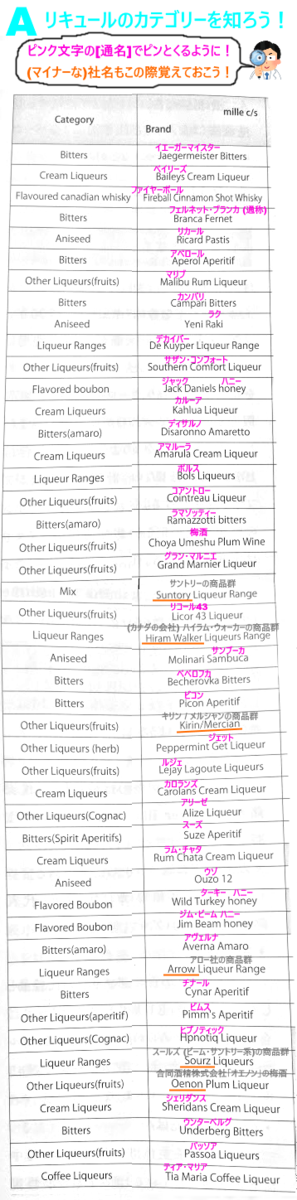 A リキュールのカテゴリーを知ろう！
ピンク文字の[通名]でピンとくるように！
(マイナーな)社名もこの際覚えておこう！
mille c/s
Category Brand
イエーガーマイスター
Bitters Jaegermeister Bitters
ベイリーズ
Cream Liqueurs Baileys Cream Liqueur
ファイヤーボール
Flavoured canadian whisky Fireball Cinnamon Shot Whisky
フェルネット・ブランカ (通称)
Bitters Branca Fernet
リカール
Aniseed Ricard Pastis
アペロール
Bitters Aperol Aperitif
マリブ
Other Liqueurs(fruits) Malibu Rum Liqueur
カンパリ
Bitters Campari Bitters
ラク
Aniseed Yeni Raki
デカイパー
Liqueur Ranges De Kuyper Liqueur Range
サザン・コンフォート
Other Liqueurs(fruits) Southern Comfort Liqueur
ジャック ハニー
Flavored boubon Jack Daniels honey
カルーア
Cream Liqueurs Kahlua Liqueur
ディサルノ
Bitters(amaro) Disaronno Amaretto
アマルーラ
Cream Liqueurs Amarula Cream Liqueur
ボルス
Liqueur Ranges Bols Liqueurs
コアントロー
Other Liqueurs(fruits) Cointreau Liqueur
ラマゾッティー
Bitters(amaro) Ramazzotti bitters
梅酒
Other Liqueurs(fruits) Choya Umeshu Plum Wine
グラン・マルニエ
Other Liqueurs(fruits) Grand Marnier Liqueur
サントリーの商品群
Mix Suntory Liqueur Range
リコール43
Other Liqueurs(fruits) Licor 43 Liqueur
(カナダの会社) ハイラム・ウォーカーの商品群
Liqueur Ranges Hiram Walker Liqueurs Range
サンブーカ
Aniseed Molinari Sambuca
ベベロフカ
Bitters Becherovka Bitters
ピコン
Bitters Picon Aperitif
キリン / メルシャンの商品群
Other Liqueurs(fruits) Kirin/Mercian
ジェット
Other Liqueurs (herb) Peppermint Get Liqueur
ルジェ
Other Liqueurs(fruits) Lejay Lagoute Liqueurs
カロランズ
Cream Liqueurs Carolans Cream Liqueur
アリーゼ
Other Liqueurs(Cognac) Alize Liqueur
スーズ
Bitters(Spirit Aperitifs) Suze Aperitif
ラム・チャタ
Cream Liqueurs Rum Chata Cream Liqueur
ウゾ
Aniseed Ouzo 12
ターキー ハニー
Flavored Boubon Wild Turkey honey
ジム・ビーム ハニー
Flavored Boubon Jim Beam honey
アヴェルナ
Bitters(amaro) Averna Amaro
アロー社の商品群
Liqueur Ranges Arrow Liqueur Range
チナール
Bitters Cynar Aperitif
ピムス
Other Liqueurs(aperitif) Pimm's Aperitif
ヒプノティック
Other Liqueurs(Cognac) Hpnotiq Liqueur
スールズ (ビーム・サントリー系)の商品群
Liqueur Ranges Sourz Liqueurs
合同酒精株式会社「オエノン」の梅酒
Other Liqueurs(fruits) Oenon Plum Liqueur
シェリダンズ
Cream Liqueurs Sheridans Cream Liqueur
ウンターベルグ
Bitters Underberg Bitters
パッソア
Other Liqueurs(fruits) Passoa Liqueurs
ティア・マリア
Coffee Liqueurs Tia Maria Coffee Liqueur